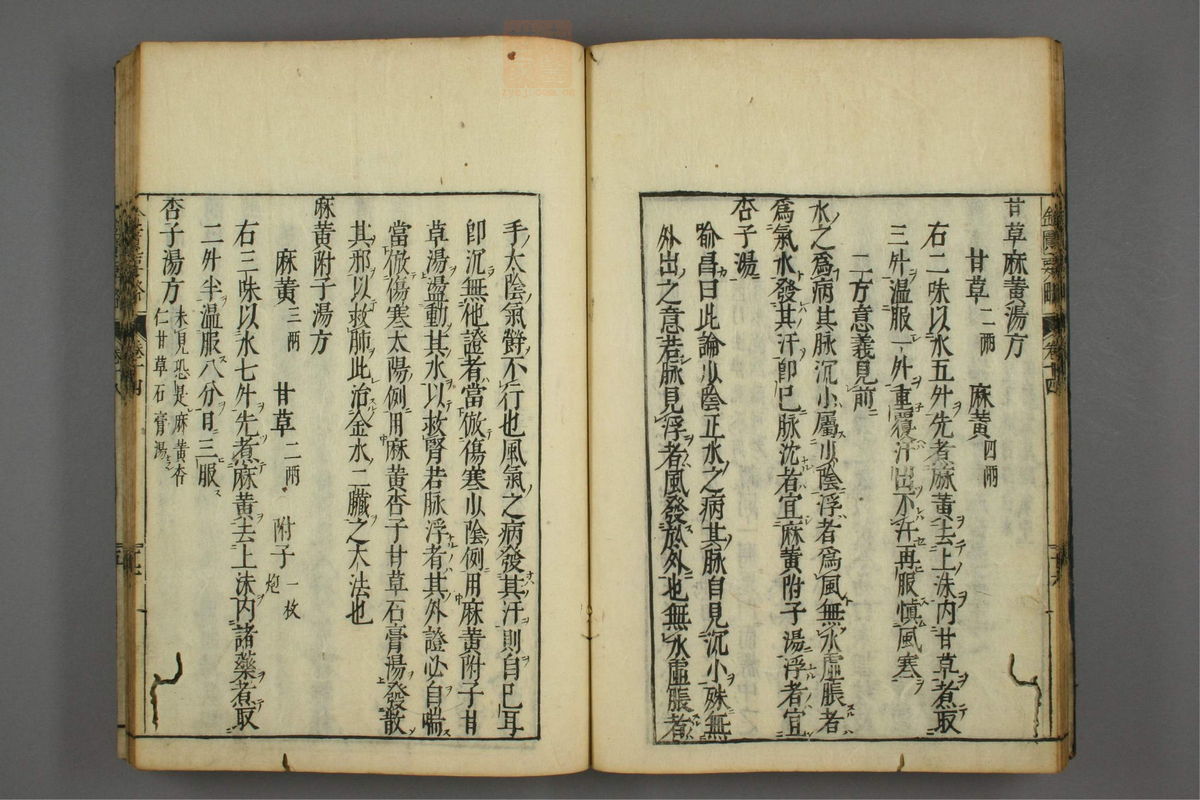 甘草麻黃湯方
甘草二兩 麻黃四兩
右二味以水五升先煮麻黃去上沫内甘草煮取
三升温服一升重覆汗出不汗再服慎風寒
二方意義見前
水之爲病其脉沉小屬少陰浮者爲風無水虛脹者
爲氣水發其汗即已脉沈者宜麻黃附子湯浮者宜
杏子湯
喻昌曰此論少陰正水之病其脉自見沉小殊無
外出之意若脉見浮者風發於外也無水虛脹者
手太陰氣欝不行也風氣之病發其汗則自已耳
即沉無他證者當倣傷寒少陰例用麻黃附子甘
草湯盪動其水以救腎若脉浮者其外證必自喘
當倣傷寒太陽例用麻黃杏子甘草石膏湯發散
其邪以救肺此治金水二臟之大法也
麻黃附子湯方
麻黃三兩 甘草二兩 附子一枚炮
右三味以水七升先煮麻黃去上沫内諸藥煮取
二升半温服八分日三服
杏子湯方 未見恐是麻黃杏
仁甘草石膏湯